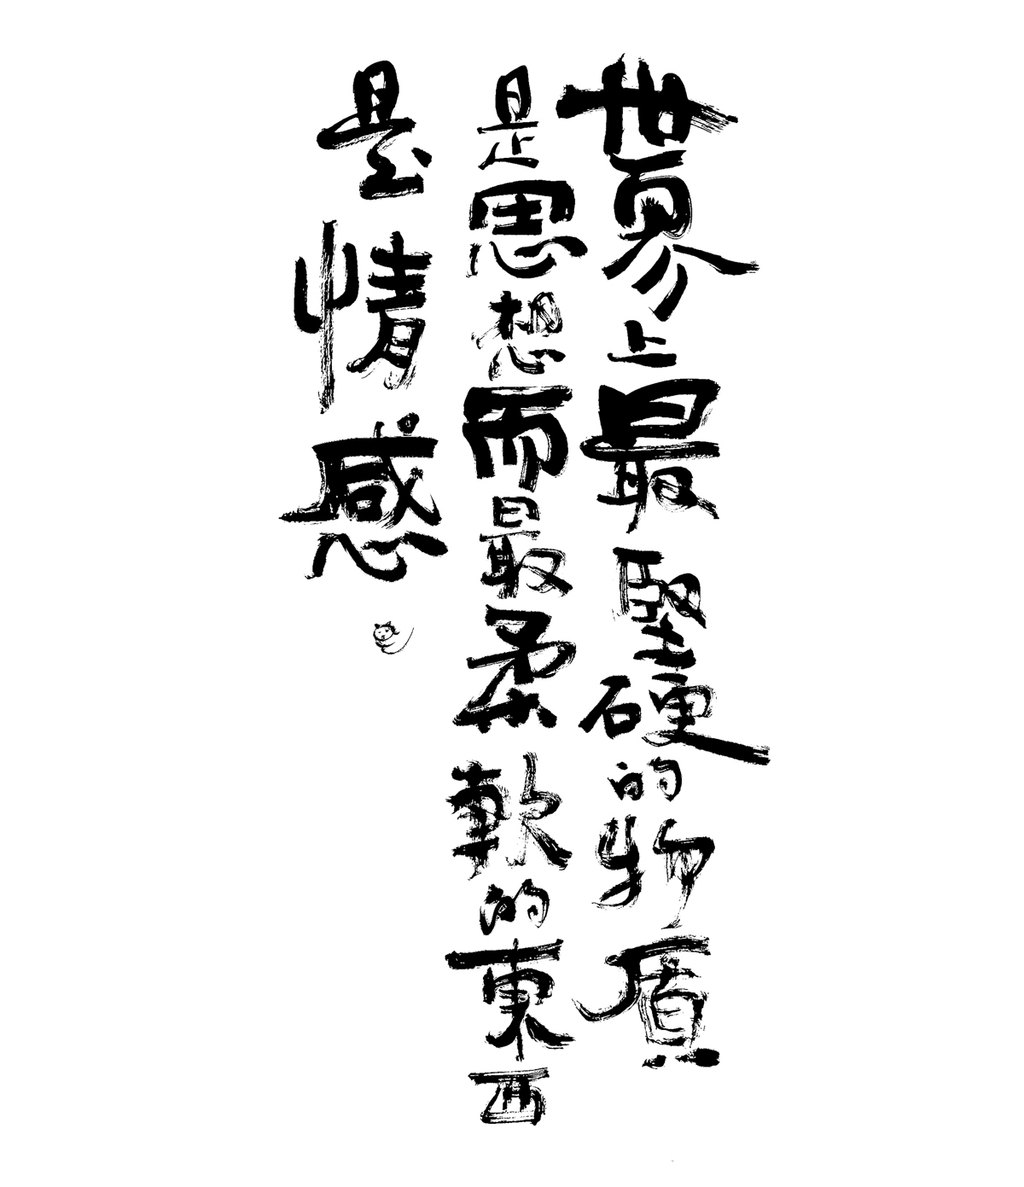 世界上最堅硬的物質
是思想而最柔軟的東西
是情感